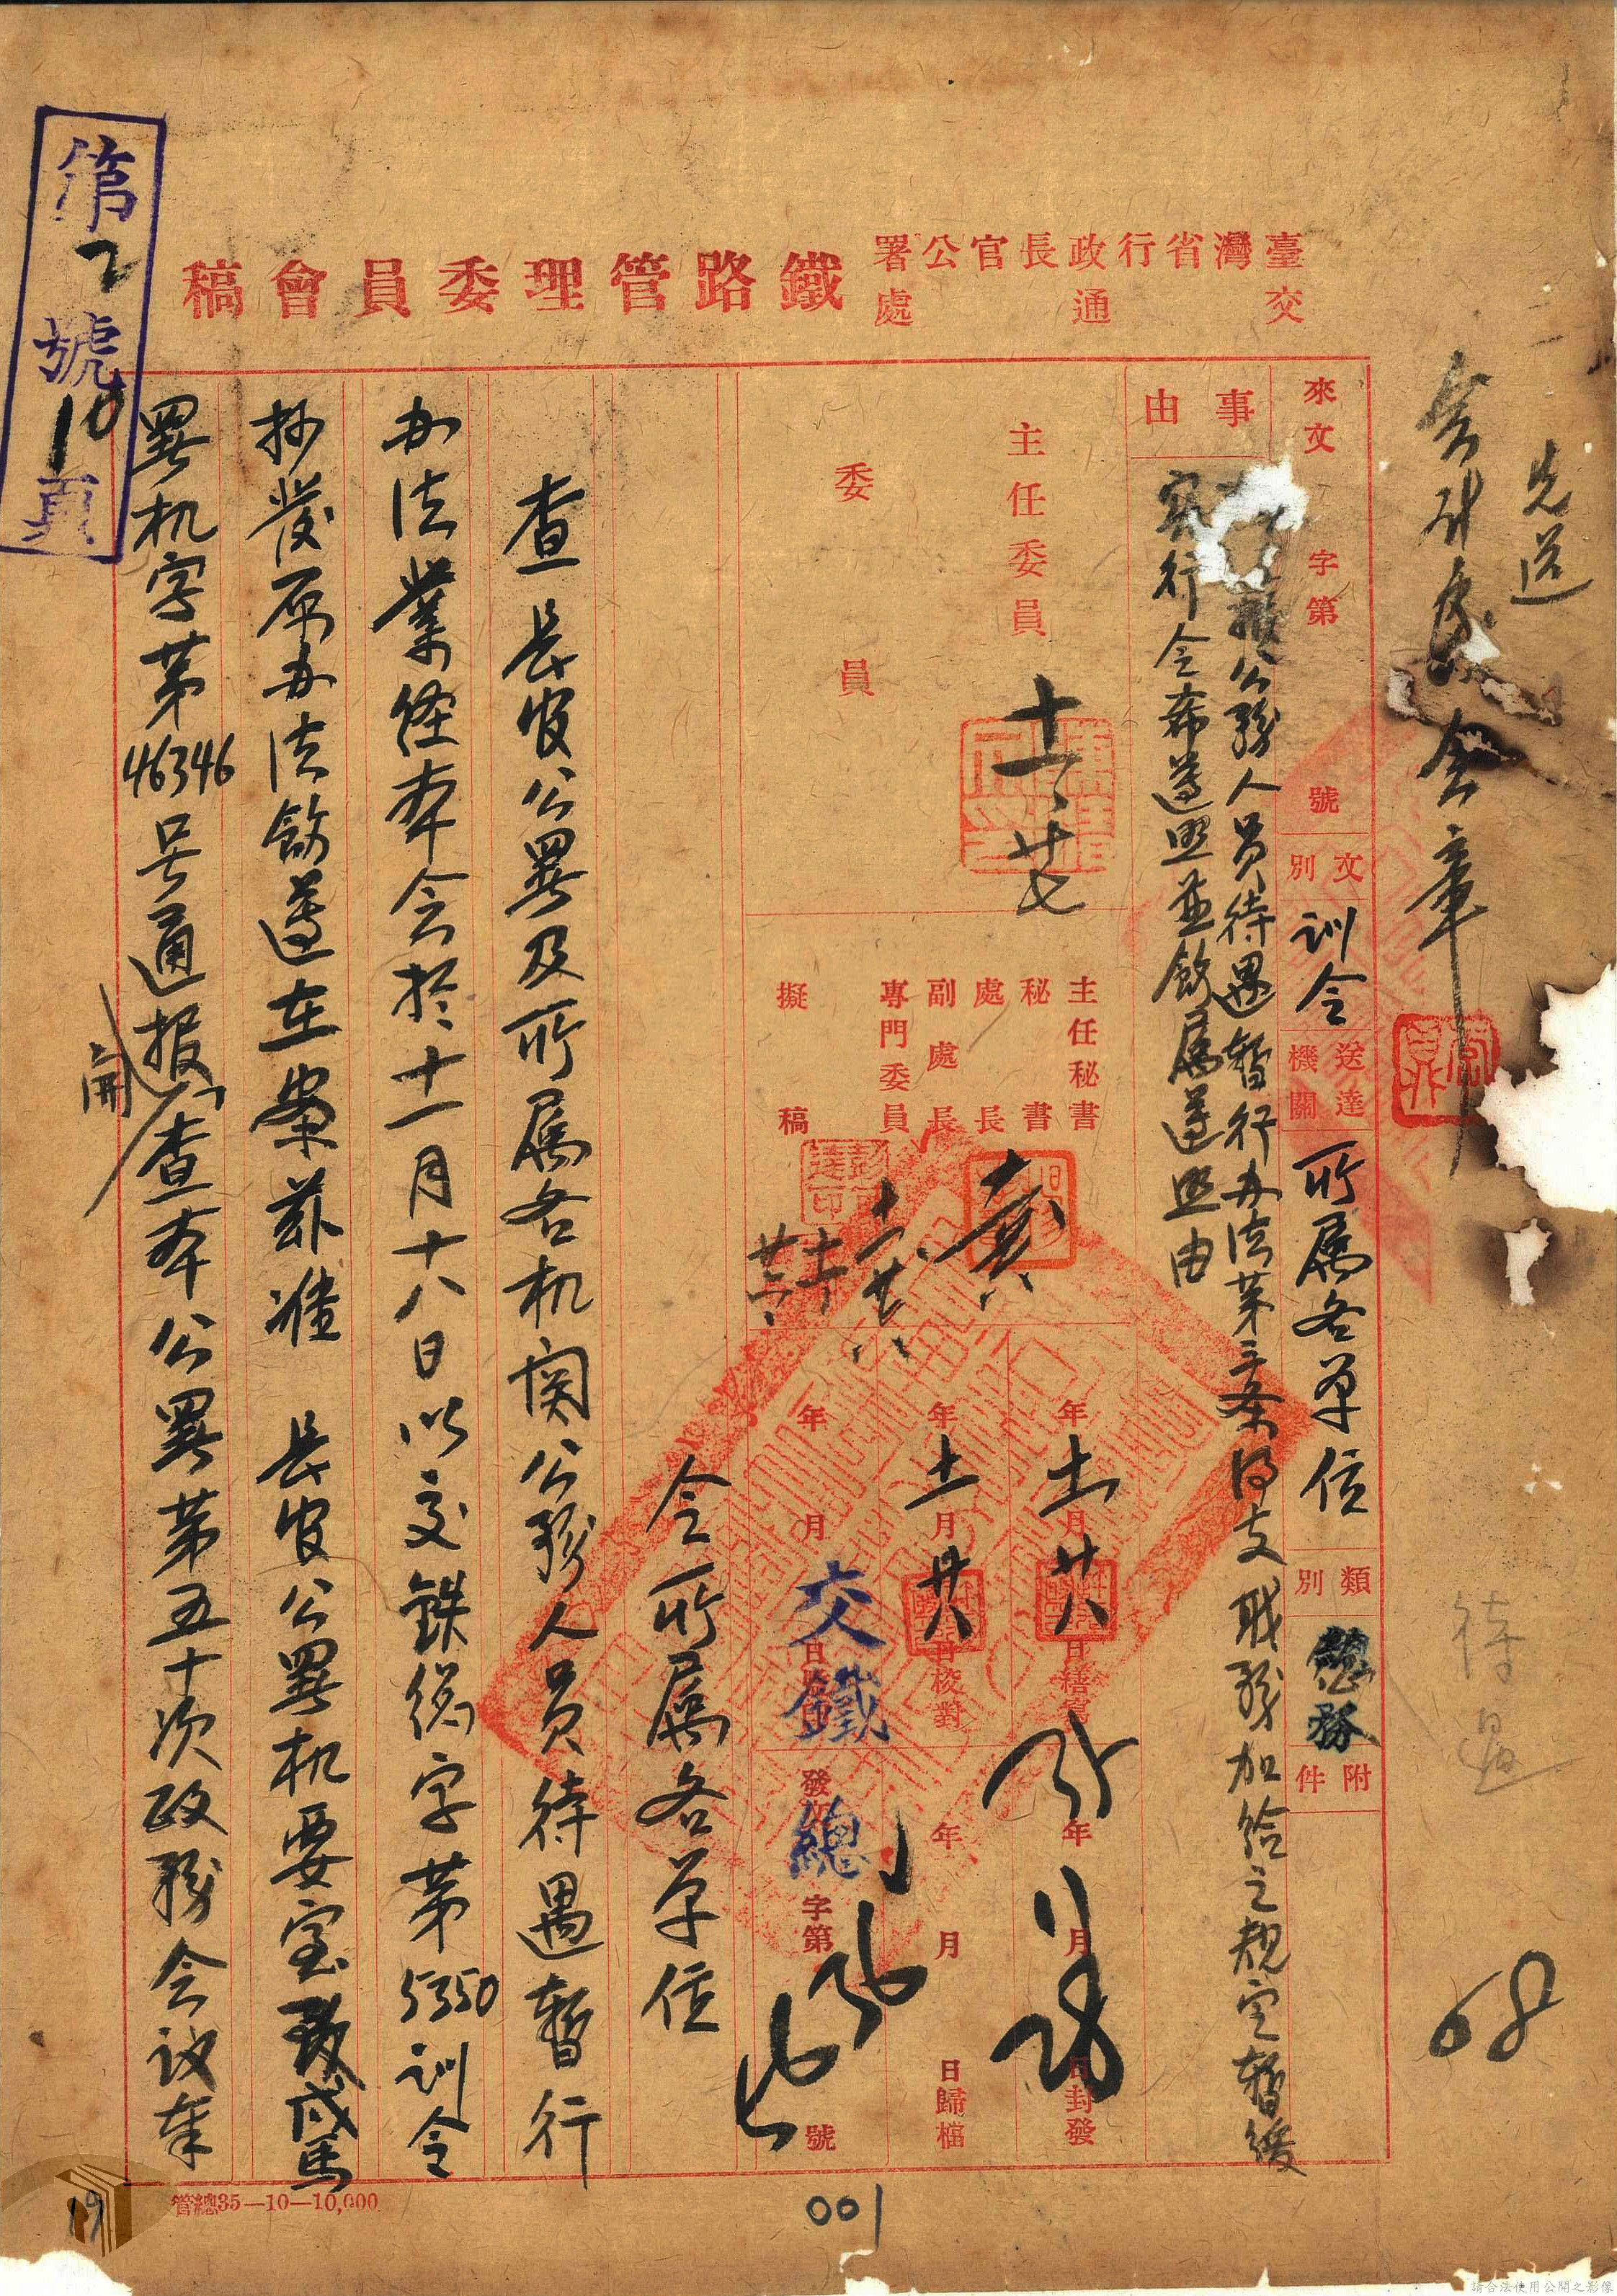 臺灣省行政長官公署
交通處
鐵路管理委員會稿
先送
會計處會章
來文 字第 號
文別 訓令
送達機關 所屬各单位
類別 總務
附件
事由
公務人員待遇暫行办法第三条得支职務加给之規定暫緩
實行令希遵照並飭屬遵照由
主任委員
十一、廿七
委員
主任秘書
秘書
處長
副處長
專門委員
擬稿
年十一月廿八日繕寫
年十一月廿八日校對
年月日
年月日封發
年月日歸檔
交鐵總
發文 字第 號
令所屬各单位
查 長官公署及所屬各机関公務人員待遇暫行
办法業經本会於十一月十八日以交鉄總字第5350訓令
抄發原办法飭遵在案茲准 長官公署机要室致戌馬
署机字第46346号通报開「查本公署第五十次政務会议奉
第2號10頁
待遇
68
管總35—10—10,000
001
19
請合法使用公開之影像